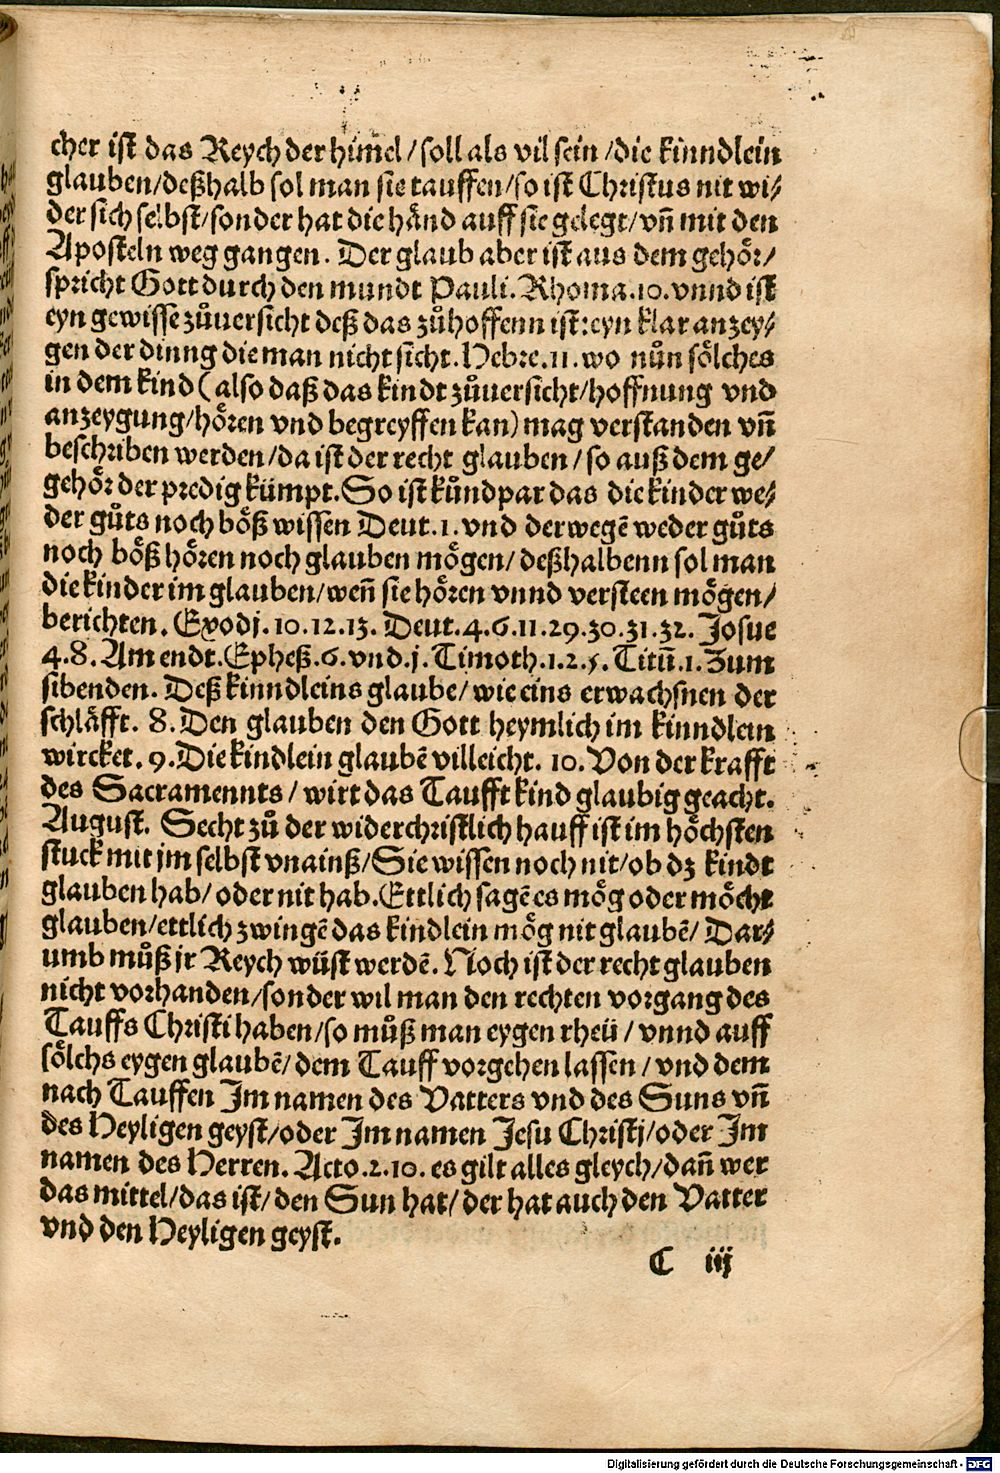 cher ist das Reych der himel / soll als vil sein / die kinndlein
glauben / deßhalb sol man sie tauffen / so ist Christus nit wi⸗
der sich selbst / sonder hat die händ auff sie gelegt / vn̄ mit den
Aposteln weg gangen. Der glaub aber ist aus dem gehör /
spricht Gott durch den mundt Pauli. Rhoma. 10. vnnd ist
eyn gewisse zůuersicht deß das zůhoffenn ist: eyn klar anzey⸗
gen der dinng die man nicht sicht. Hebre. 11. wo nůn sölches
in dem kind (also daß das kindt zůuersicht / hoffnung vnd
anzeygung / hören vnd begreyffen kan) mag verstanden vn̄
beschriben werden / da ist der recht glauben / so auß dem ge⸗
gehör der predig kümpt. So ist kůndpar das die kinder we⸗
der gůts noch böß wissen Deut. 1. vnd der wegē weder gůts
noch böß hören noch glauben mögen / deßhalbenn sol man
die kinder im glauben / wen̄ sie hören vnnd versteen mögen /
berichten. Exodj. 10. 12. 13. Deut. 4. 6. 11. 29. 30. 31. 32. Josue
4. 8. Am endt. Epheß. 6. vnd. j. Timoth. 1. 2. 5. Titū. 1. Zum
sibenden. Deß kinndleins glaube / wie eins erwachsnen der
schläfft. 8. Den glauben den Gott heymlich im kinndlein
wircket. 9. Die kindlein glaubē villeicht. 10. Von der krafft
des Sacramennts / wirt das Taufft kind glaubig geacht.
August. Secht zů der widerchristlich hauff ist im höchsten
stuck mit jm selbst vnainß / Sie wissen noch nit / ob dz kindt
glauben hab / oder nit hab. Ettlich sagē es mög oder möcht
glauben / ettlich zwingē das kindlein mög nit glaubē / Dar⸗
umb můß jr Reych wüst werdē. Noch ist der recht glauben
nicht vorhanden / sonder wil man den rechten vorgang des
Tauffs Christi haben / so můß man eygen rheü / vnnd auff
sölchs eygen glaubē / dem Tauff vorgehen lassen / vnd dem
nach Tauffen Im namen des Vatters vnd des Suns vn̄
des Heyligen geyst / oder Im namen Jesu Christj / oder Im
namen des Herren. Acto. 2. 10. es gilt alles gleych / dan̄ wer
das mittel / das ist / den Sun hat / der hat auch den Vatter
vnd den Heyligen geyst.
C iij
Digitalisierung gefördert durch die Deutsche Forschungsgemeinschaft - DFG